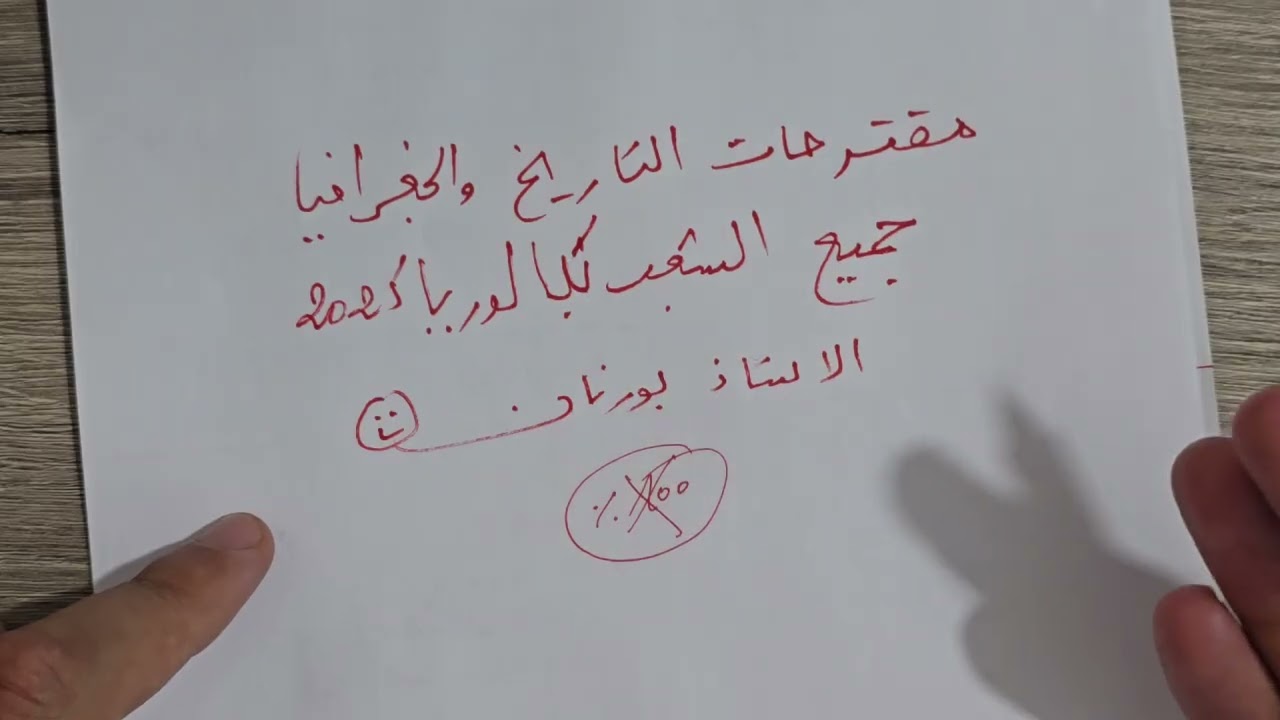 مقترحات التاريخ والجغرافيا
جميع الشعب بكالوريا 2025
الاستاذ بورنان
%100